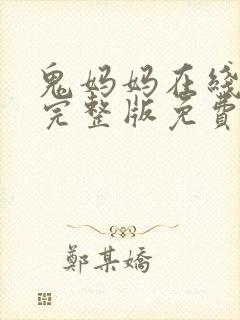 鬼妈妈在线
完整版免費
鄭某嬌